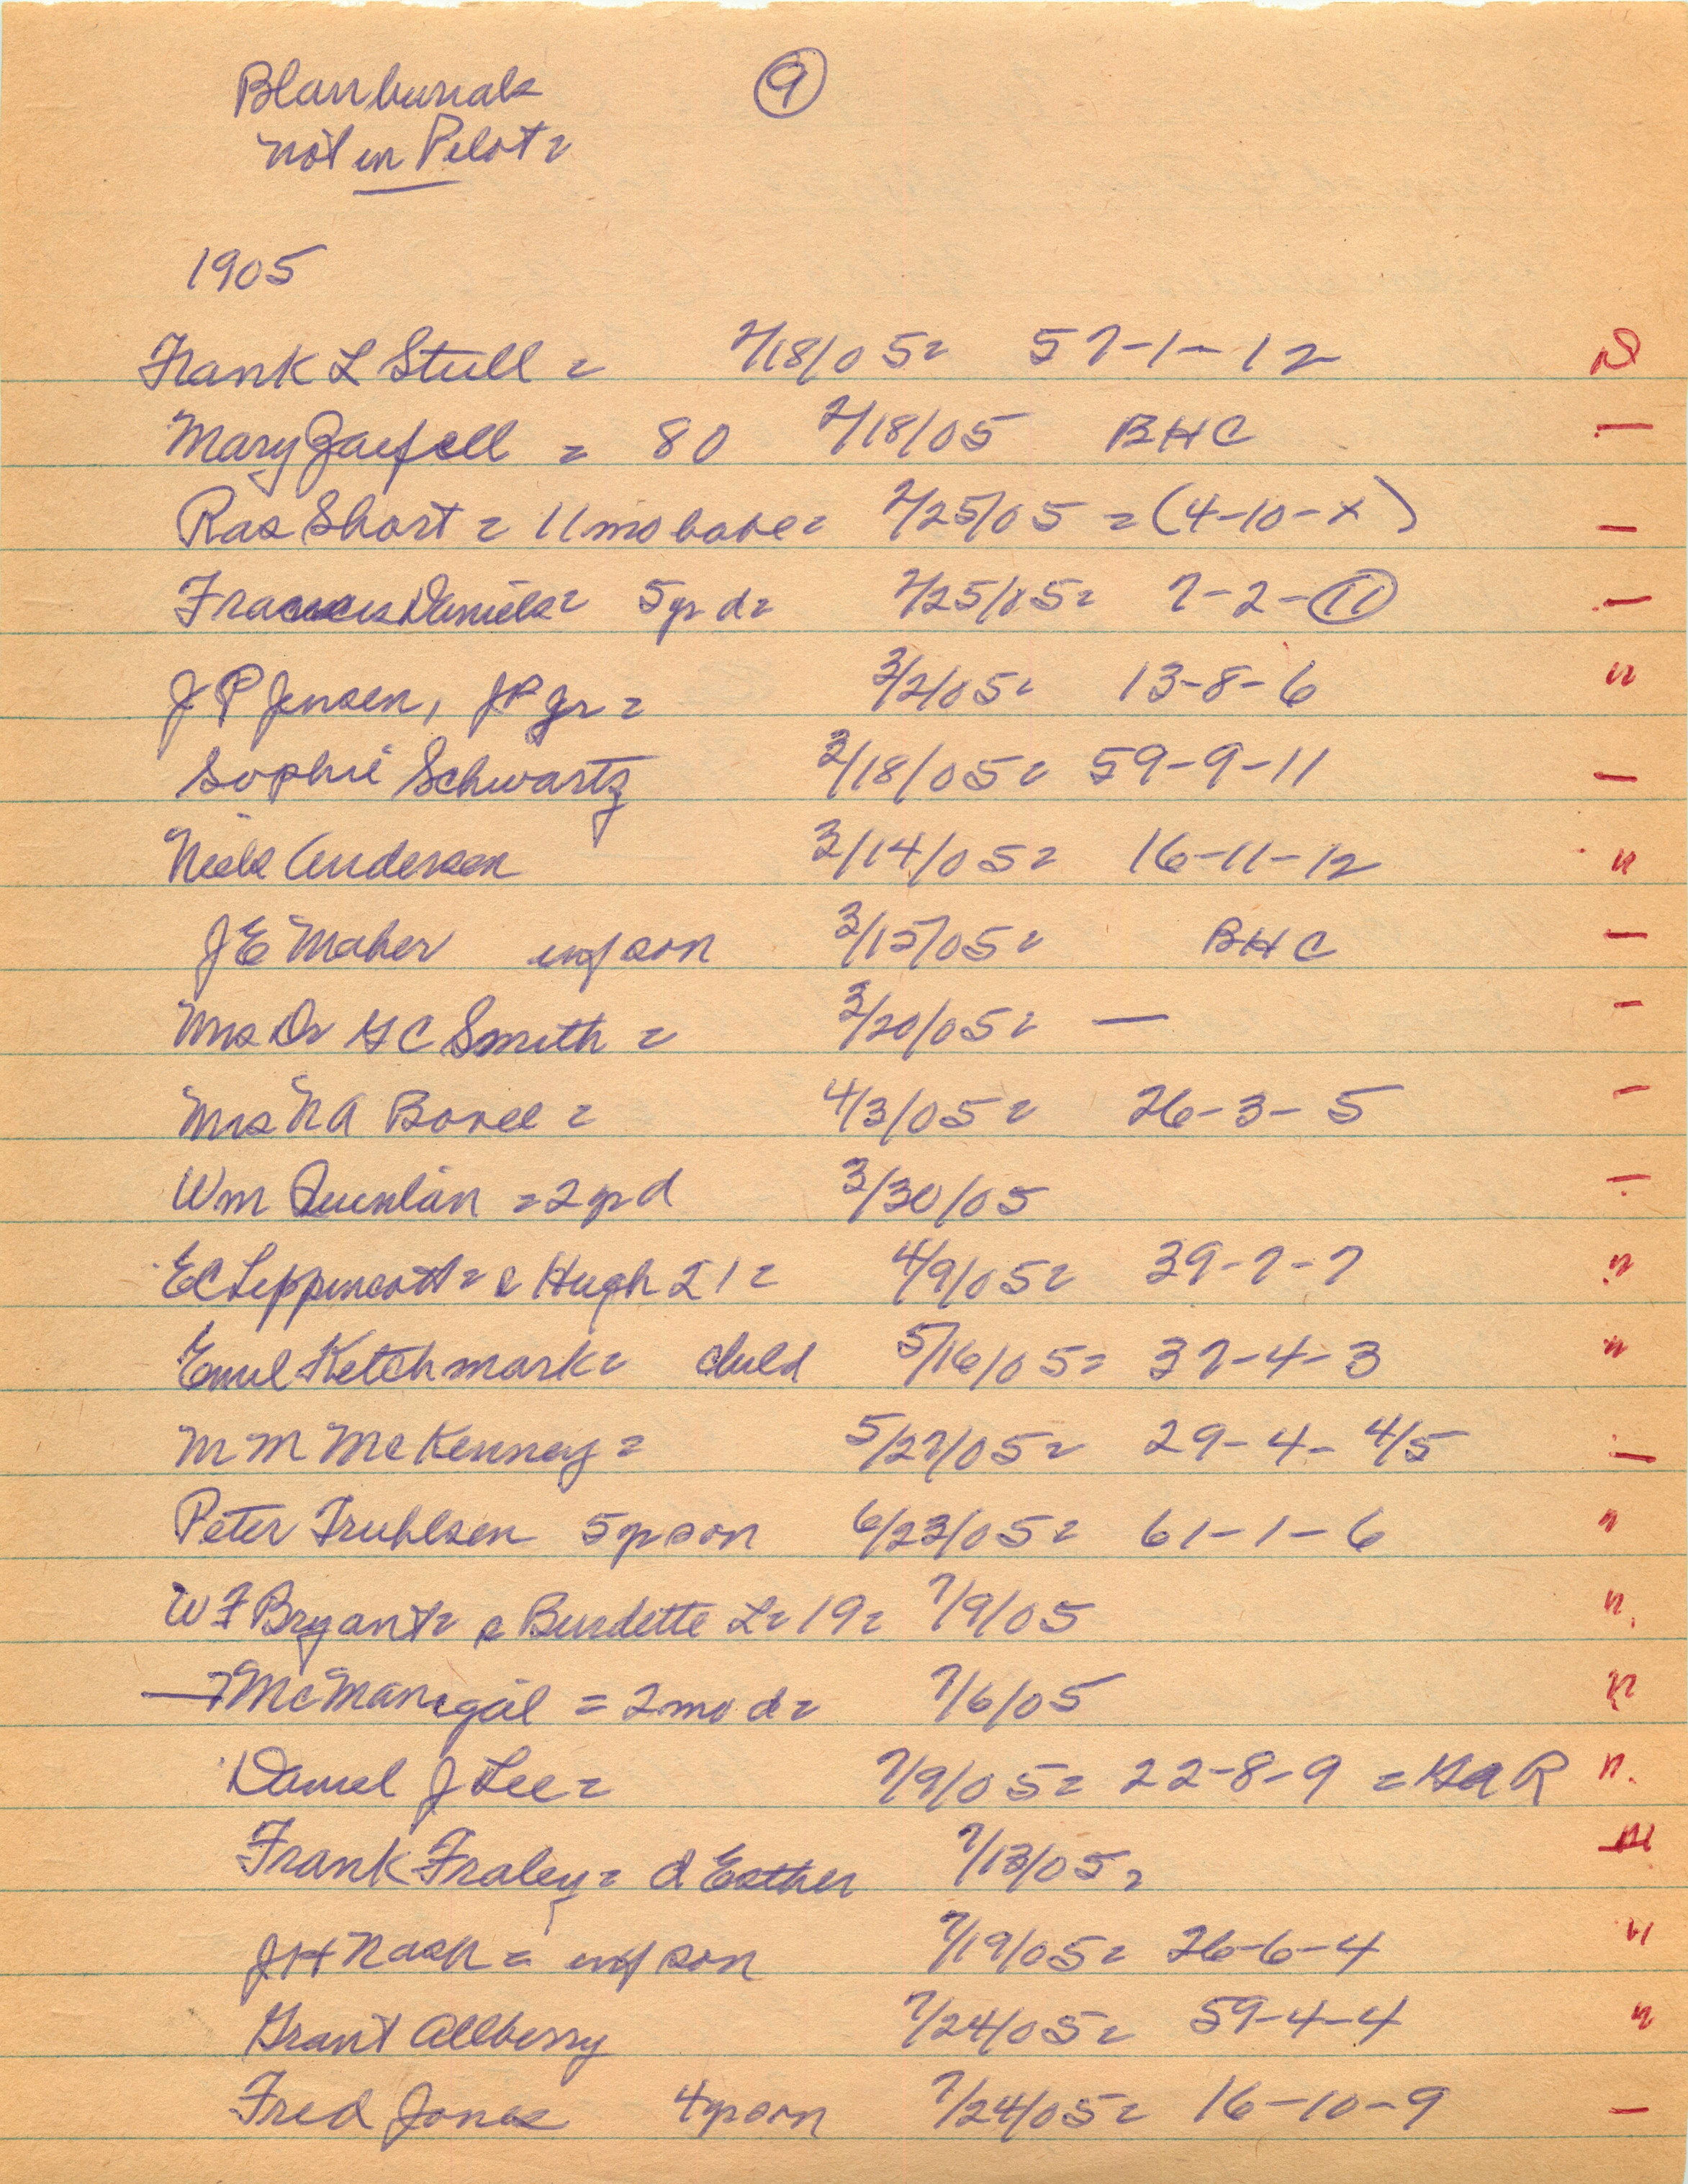 Blair burials ⑨
not in Pilot =
1905
Frank L Stull = 2/18/05 = 57-1-12 N
Mary = 80 2/18/05 BHC —
Ras Short = 11 mo babe = 2/25/05 = (4-10-x) —
Francis Daniels = 5 yr d = 2/25/05 = 7-2-⑪ —
J P Jensen, JP Jr = 3/2/05 = 13-8-6 n
Sophie Schwartz 3/18/05 = 59-9-11 —
Niels Andersen 3/14/05 = 16-11-12 n
J E Maher inf son 3/15/05 = BHC —
Mrs Dr G C Smith = 3/20/05 = — —
Mrs N A Bovee = 4/3/05 = 26-3-5 —
Wm Quinlan = 2 yr d 3/30/05 —
EC Lippincott = c Hugh 21 = 4/9/05 = 39-7-7 n
Emil Ketchmark = child 5/16/05 = 37-4-3 n
M M McKenney = 5/27/05 = 29-4-4/5 —
Peter Truhlsen 5 yr son 6/23/05 = 61-1-6 n
W F Bryant = c Burdette L = 19 = 7/9/05 n.
— McManigal = 2 mo d = 7/6/05 n
Daniel J Lee = 7/9/05 = 22-8-9 = GAR n.
Frank Fraley = d Esther 7/13/05 =
J H Nash = inf son 7/19/05 = 26-6-4 n
Grant Allberry 7/24/05 = 59-4-4 n
Fred Jones 4 yr son 7/24/05 = 16-10-9 —